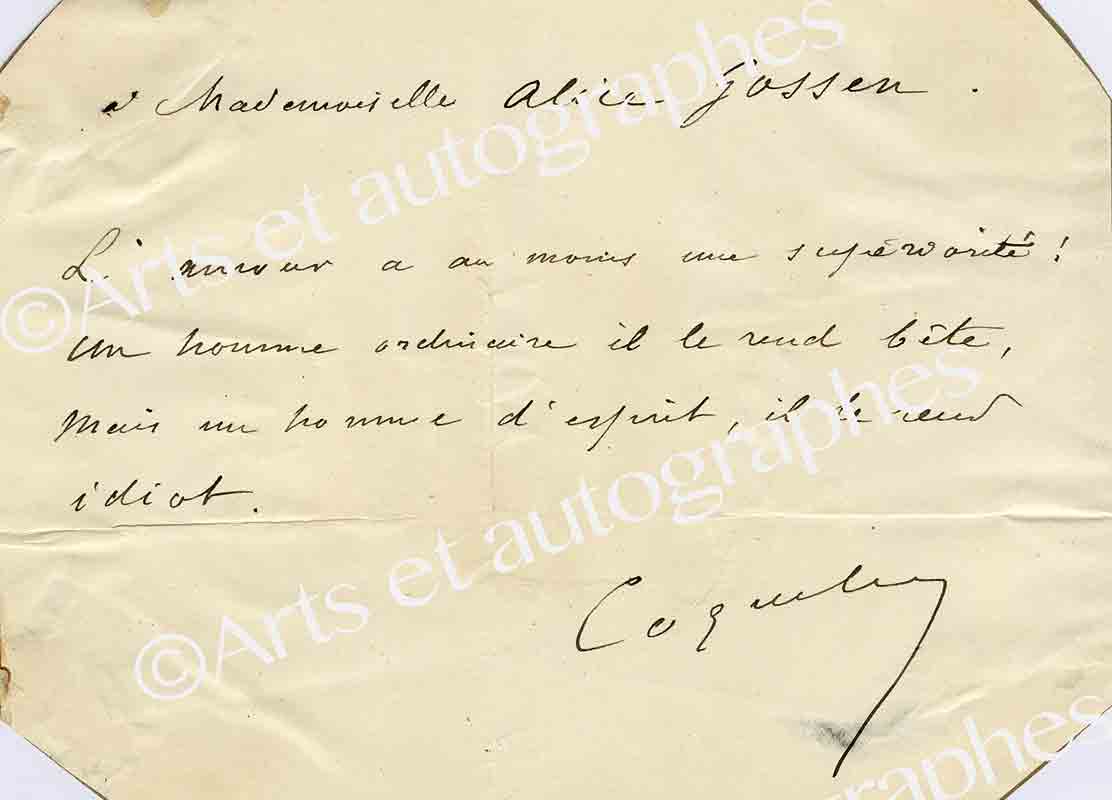 à Mademoiselle Alice Jossen.
L'amour a au moins une supériorité!
un homme ordinaire il le rend bête,
mais un homme d'esprit, il le rend
idiot.
Coquelin
©Arts et autographes
©Arts et autographes
autographes